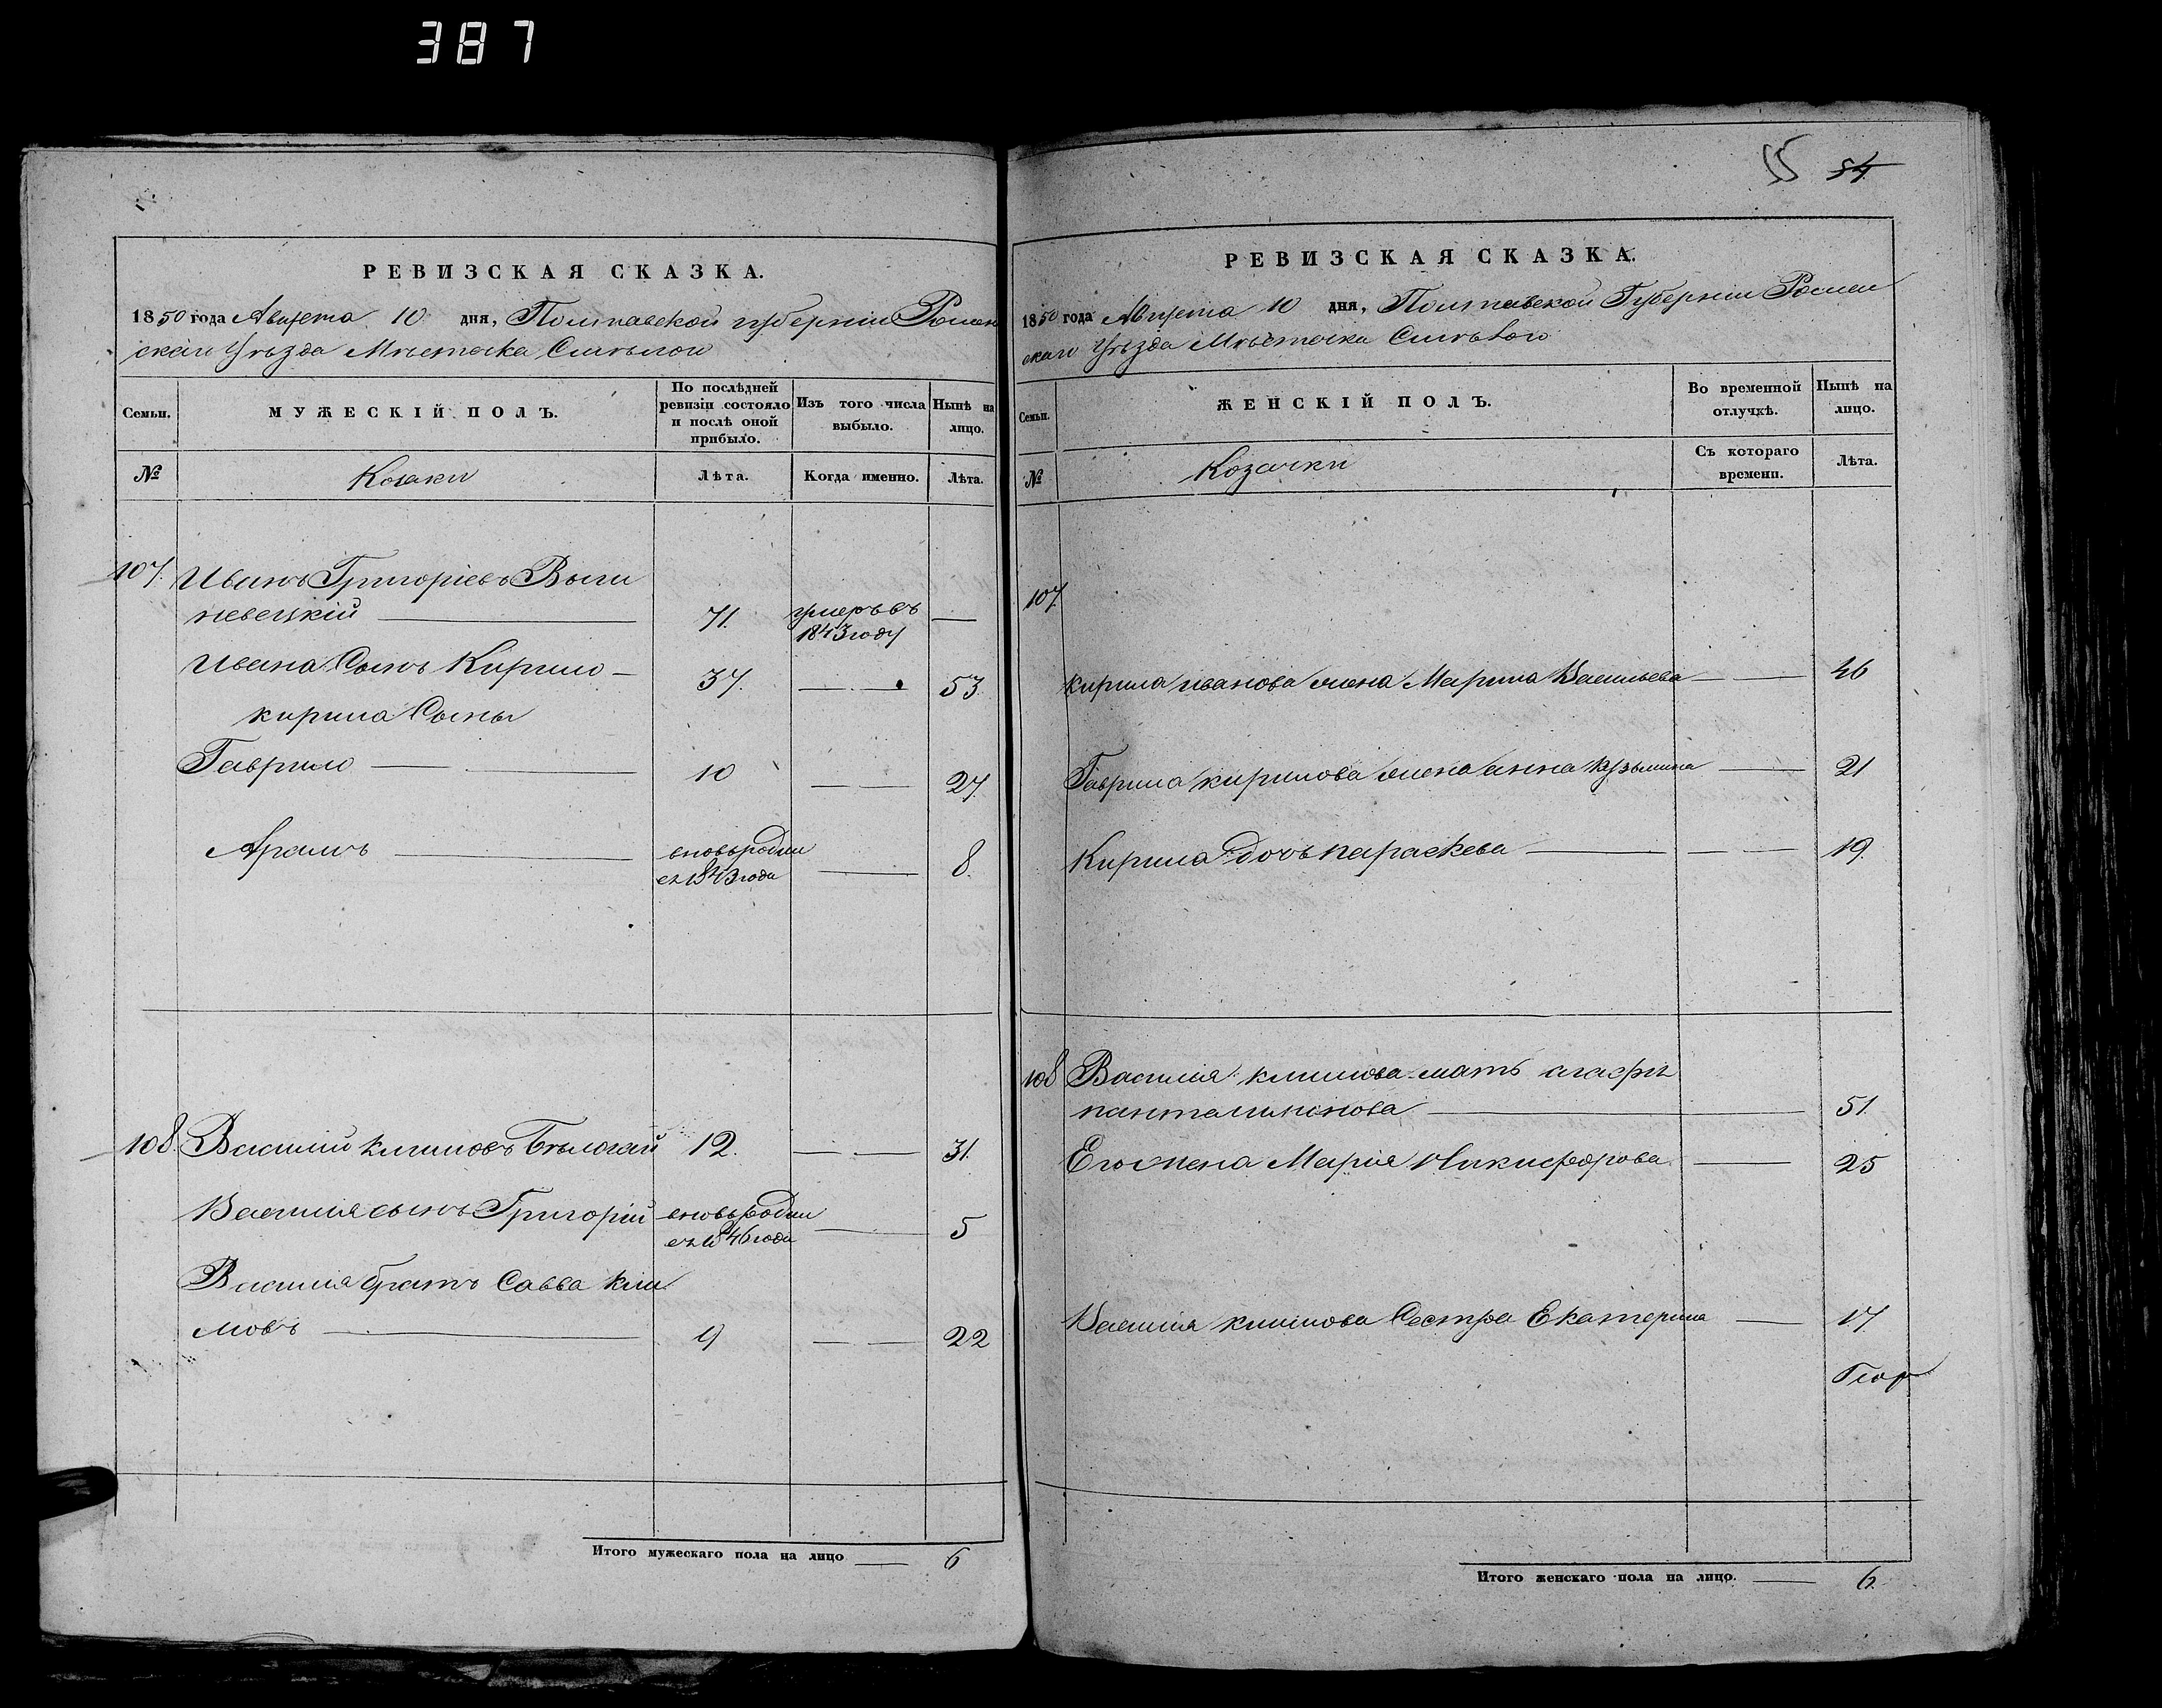 387
55 54
РЕВИЗСКАЯ СКАЗКА.
1850 года Августа 10 дня, Полтавской губерніи Ромен
скаго Уѣзда Мѣстечка Смѣлого
Семьи.
МУЖЕСКІЙ ПОЛЪ.
По послѣдней ревизіи состояло и послѣ оной прибыло.
Изъ того числа выбыло.
Нынѣ на лицо.
№
Козаки
Лѣта.
Когда именно.
Лѣта.
107. Иванъ Григоріевъ
невецкій 71. умеръ въ 1843 году
Ивана Сынъ Кирило 37. 53.
кирила Сыны
Гаврило 10 27.
вновь родил
ся 1843 года 8.
108. Василий климовъ 12. 31.
Василия сынъ Григорій вновь родил
ся 1846 года 5
Василия братъ Савва кли
мовъ 9 22
Итого мужескаго пола на лицо 6
РЕВИЗСКАЯ СКАЗКА.
1850 года Августа 10 дня, Полтавской Губерніи Ромен
скаго Уѣзда Мѣстечка Смѣлого
Семьи.
ЖЕНСКІЙ ПОЛЪ.
Во временной отлучкѣ.
Нынѣ на лицо.
№
Козачки
Съ котораго времени.
Лѣта.
107.
кирила иванова жена Марина Васильева 46
Гаврила кирилова жена анна 21
Кирила дочь параскева 19.
108 Василия климова мать агафія
51.
Его жена Марія Никифорова 25
Василия климова Сестра Екатерина 17.
Итого женскаго пола на лицо. 6.